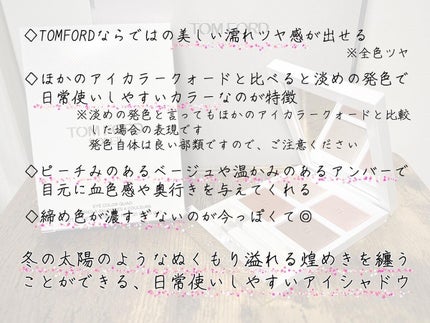 TOM FORD
◇TOMFORDならではの美しい濡れツヤ感が出せる
※全色ツヤ
◇ほかのアイカラークォードと比べると淡めの発色で
日常使いしやすいカラーなのが特徴
※淡めの発色と言ってもほかのアイカラークォードと比較
した場合の表現です
発色自体は良い部類ですので、ご注意ください
◇ピーチみのあるベージュや温かみのあるアンバーで
目元に血色感や奥行きを与えてくれる
◇締め色が濃すぎないのが今っぽくて◎
冬の太陽のようなぬくもり溢れる煌めきを纏う
ことができる、日常使いしやすいアイシャドウ